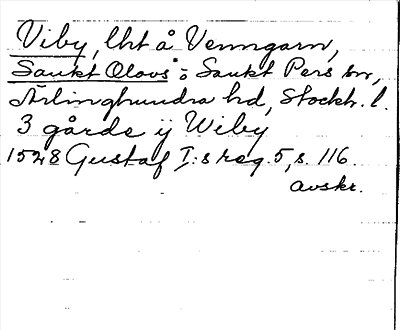 Viby, lht å Venngarn,
Sankt Olovs o Sankt Pers sn,
Ärlinghundra hd, Stockh. l.
3 gårde ij Wiby
1528 Gustaf I:s reg. 5, s. 116.
avskr.